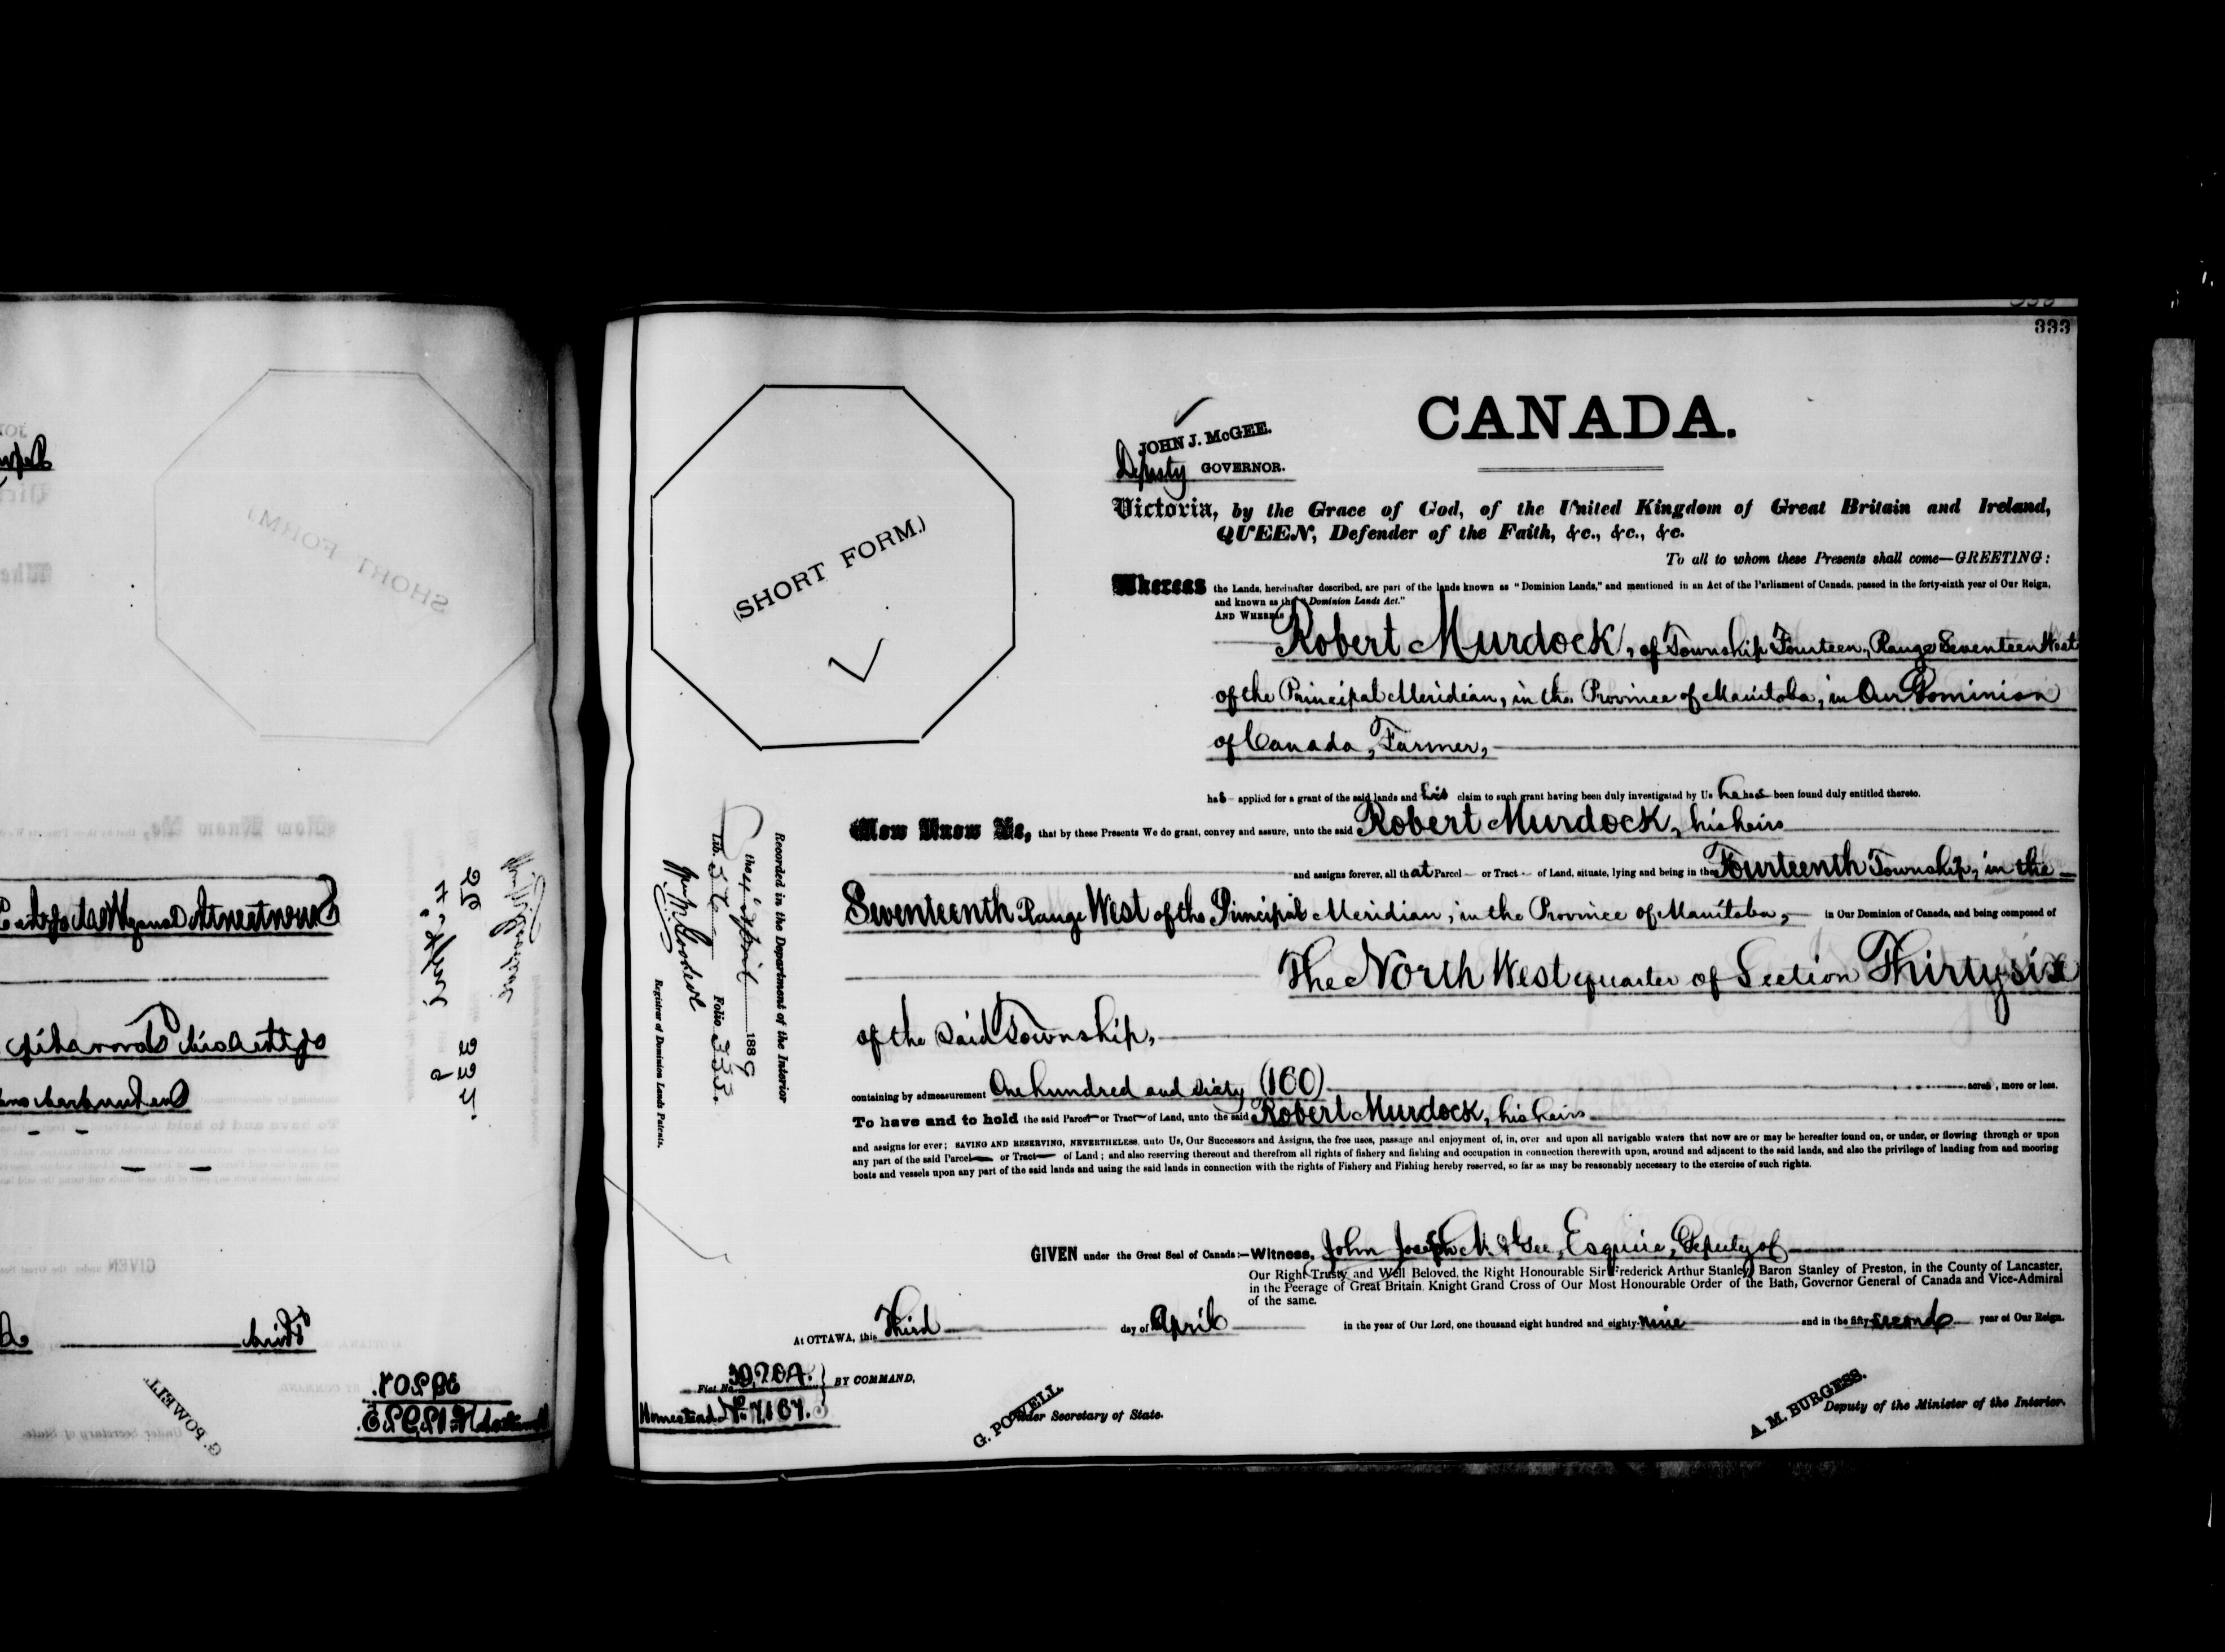 333
CANADA.
JOHN J. McGEE.
Deputy GOVERNOR.
(SHORT FORM.)
Victoria, by the Grace of God, of the United Kingdom of Great Britain and Ireland,
QUEEN, Defender of the Faith, &c., &c., &c.
To all to whom these Presents shall come—GREETING:
Whereas the Lands, hereinafter described, are part of the lands known as "Dominion Lands," and mentioned in an Act of the Parliament of Canada, passed in the forty-sixth year of Our Reign,
and known as the "Dominion Lands Act."
AND WHEREAS
Robert Murdock, of Township Fourteen, Range Seventeen West
of the Principal Meridian, in the Province of Manitoba, in Our Dominion
of Canada, Farmer,
has applied for a grant of the said lands and his claim to such grant having been duly investigated by Us he has been found duly entitled thereto.
Now Know Ye, that by these Presents We do grant, convey and assure, unto the said Robert Murdock, his heirs
and assigns forever, all that Parcel or Tract of Land, situate, lying and being in the Fourteenth Township, in the
Seventeenth Range West of the Principal Meridian, in the Province of Manitoba, in Our Dominion of Canada, and being composed of
The North West quarter of Section Thirty six
of the said Township,
containing by admeasurement One hundred and sixty (160) acres, more or less.
To have and to hold the said Parcel or Tract of Land, unto the said Robert Murdock, his heirs
and assigns for ever; SAVING AND RESERVING, NEVERTHELESS, unto Us, Our Successors and Assigns, the free uses, passage and enjoyment of, in, over and upon all navigable waters that now are or may be hereafter found on, or under, or flowing through or upon
any part of the said Parcel or Tract of Land; and also reserving thereout and therefrom all rights of fishery and fishing and occupation in connection therewith upon, around and adjacent to the said lands, and also the privilege of landing from and mooring
boats and vessels upon any part of the said lands and using the said lands in connection with the rights of Fishery and Fishing hereby reserved, so far as may be reasonably necessary to the exercise of such rights.
Recorded in the Department of the Interior
the 4th April 1889
Lib. 56 Folio 333.
Registrar of Dominion Lands Patents.
GIVEN under the Great Seal of Canada:—Witness, John Joseph McGee, Esquire, Deputy of
Our Right Trusty and Well Beloved, the Right Honourable Sir Frederick Arthur Stanley, Baron Stanley of Preston, in the County of Lancaster,
in the Peerage of Great Britain, Knight Grand Cross of Our Most Honourable Order of the Bath, Governor General of Canada and Vice-Admiral
of the same.
At OTTAWA, this Third day of April in the year of Our Lord, one thousand eight hundred and eighty-nine and in the fifty-second year of Our Reign.
Fiat No.
BY COMMAND,
Homestead No 7167.
G. POWELL.
Under Secretary of State.
A. M. BURGESS.
Deputy of the Minister of the Interior.